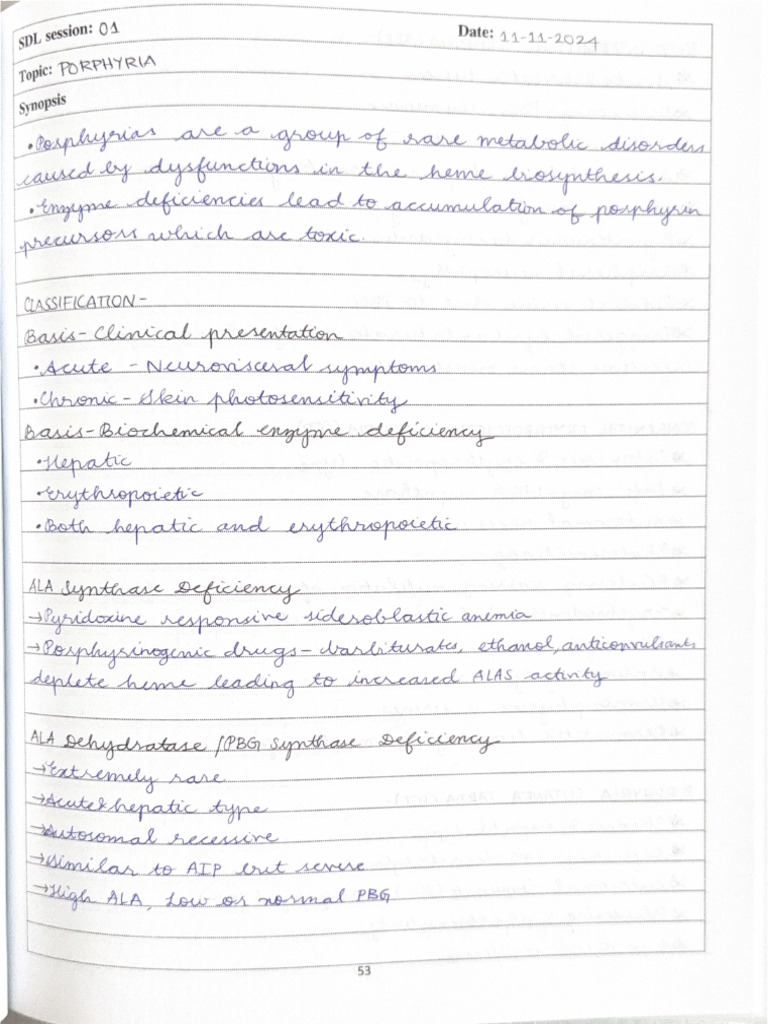 SDL session: 01 Date: 11-11-2024
Topic: PORPHYRIA
Synopsis
• Porphyrias are a group of rare metabolic disorders
caused by dysfunctions in the heme biosynthesis.
• Enzyme deficiencies lead to accumulation of porphyrin
precursors which are toxic.
CLASSIFICATION -
Basis - Clinical presentation
• Acute - Neurovisceral symptoms
• Chronic - Skin photosensitivity
Basis - Biochemical enzyme deficiency
• Hepatic
• Erythropoietic
• Both hepatic and erythropoietic
ALA Synthase Deficiency
→ Pyridoxine responsive sideroblastic anemia
→ Porphyrinogenic drugs - barbiturates, ethanol, anticonvulsants
deplete heme leading to increased ALAS activity
ALA Dehydratase / PBG Synthase Deficiency
→ Extremely rare
→ Acute & hepatic type
→ Autosomal recessive
→ Similar to AIP but severe
→ High ALA, Low or normal PBG
53